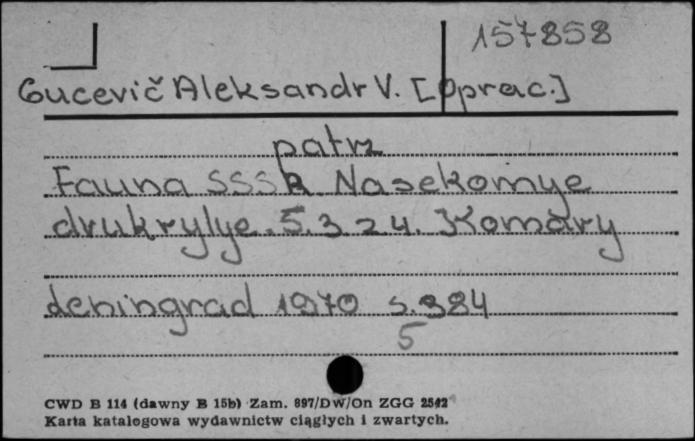 157858
Gucevič Aleksandr V. [oprac.]
patrz
Fauna SSSR Nasekomye
dvukrylye. 5. 3 z 4. Komary
Leningrad 1970 s. 384
5
CWD B 114 (dawny B 15b) Zam. 897/DW/On ZGG 2542
Karta katalogowa wydawnictw ciągłych i zwartych.